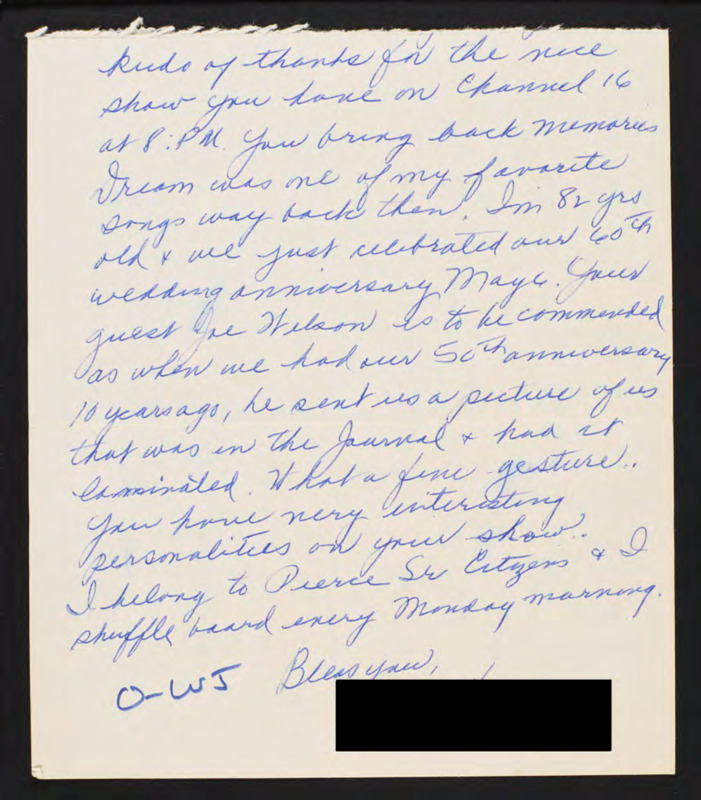 kudo of thanks for the nice
show you have on Channel 16
at 8:PM. You bring back memories
Dream was one of my favorite
songs way back then. I'm 82 yrs
old & we just celebrated our 60th
wedding anniversary May 6. Your
guest Joe Wilson is to be commended
as when we had our 50th anniversary
10 years ago, he sent us a picture of us
that was in the Journal & had it
laminated. What a fine gesture..
You have very interesting
personalities on your show..
I belong to Pierce Sr Citizens & I
shuffle board every Monday morning.
O-WJ Bless you,